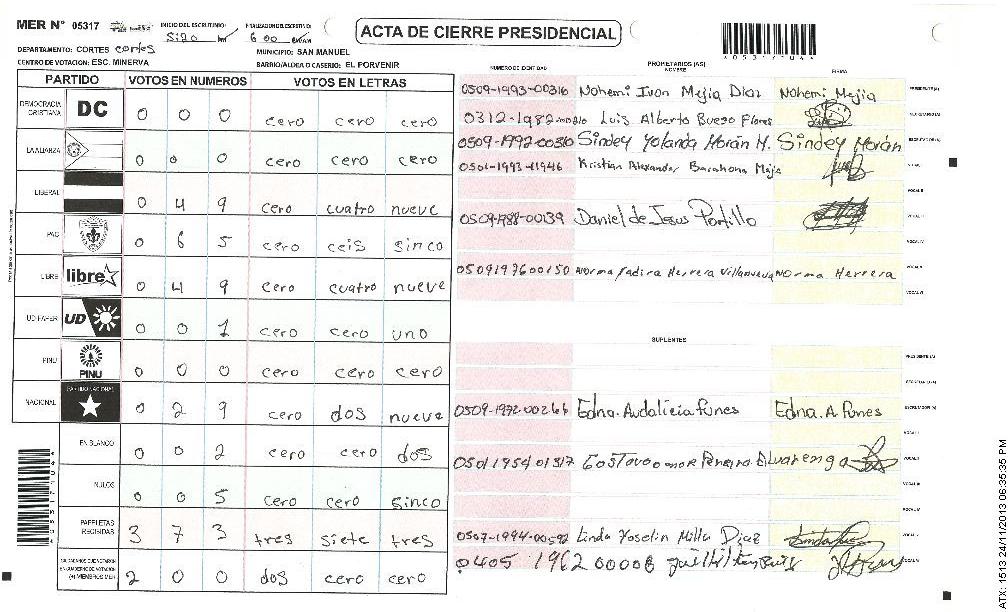 MER N° 05317 INICIO DEL ESCRUTINIO: FINALIZACION DEL ESCRUTINIO:
5:20 6:00
ACTA DE CIERRE PRESIDENCIAL
DEPARTAMENTO: CORTES cortes MUNICIPIO: SAN MANUEL
CENTRO DE VOTACION: ESC. MINERVA BARRIO/ALDEA O CASERIO: EL PORVENIR
PARTIDO VOTOS EN NUMEROS VOTOS EN LETRAS
DEMOCRACIA CRISTIANA DC 0 0 0 cero cero cero
LA ALIANZA 0 0 0 cero cero cero
LIBERAL 0 4 9 cero cuatro nueve
PAC 0 6 5 cero ceis sinco
LIBRE libre 0 4 9 cero cuatro nueve
UD FAPER UD 0 0 1 cero cero uno
PINU PINU 0 0 0 cero cero cero
NACIONAL PARTIDO NACIONAL 0 2 9 cero dos nueve
EN BLANCO 0 0 2 cero cero dos
NULOS 0 0 5 cero cero sinco
PAPELETAS RECIBIDAS 3 7 3 tres siete tres
(+) MIEMBROS MER 2 0 0 dos cero cero
NUMERO DE IDENTIDAD PROPIETARIOS (AS) NOMBRE FIRMA
0509-1993-00316 Nohemi Ivon Mejia Diaz Nohemi Mejia PRESIDENTE (A)
0312-1982 Luis Alberto Bueso Flores SECRETARIO (A)
0509-1992-00310 Sindey Yolanda Morán M. Sindey Morán ESCRUTADOR (A)
0501-1993-11946 Kristian Alexander Barahona Mejia VOCAL I
VOCAL II
0509-1988-00139 Daniel de Jesus Portillo VOCAL III
VOCAL IV
0509197600150 Norma Yadira Herrera Villanueva Norma Herrera VOCAL V
VOCAL VI
SUPLENTES
PRESIDENTE (A)
SECRETARIO (A)
0509-1972-00266 Edna Audalicia Funes Edna. A Funes ESCRUTADOR (A)
VOCAL I
0501195401317 Gustavo Pereira Alvarenga VOCAL II
VOCAL III
VOCAL IV
0507-1994-00592 Linda Yoselin Milla Diaz VOCAL V
0405 1962 00008
05317044
ATX: 1513 24/11/2013 06:35:35 PM